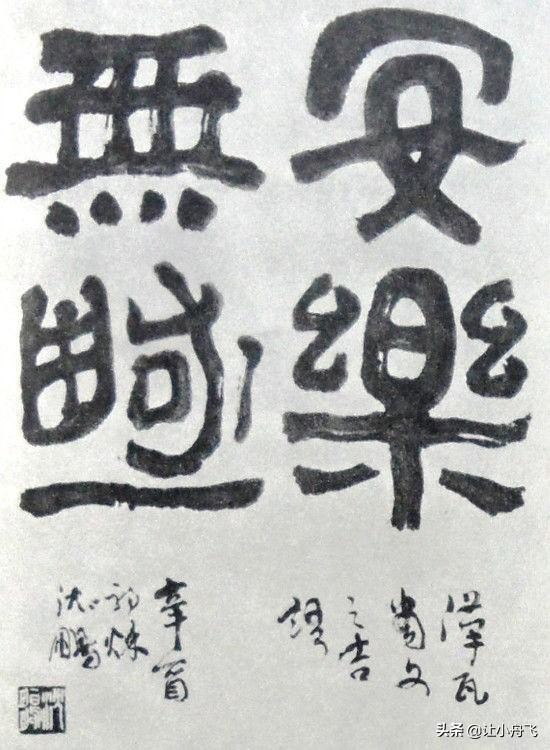 安樂
無
漢瓦
當文
之吉
語
辛酉
初秋
沈鵬
头条 @让小丹飞